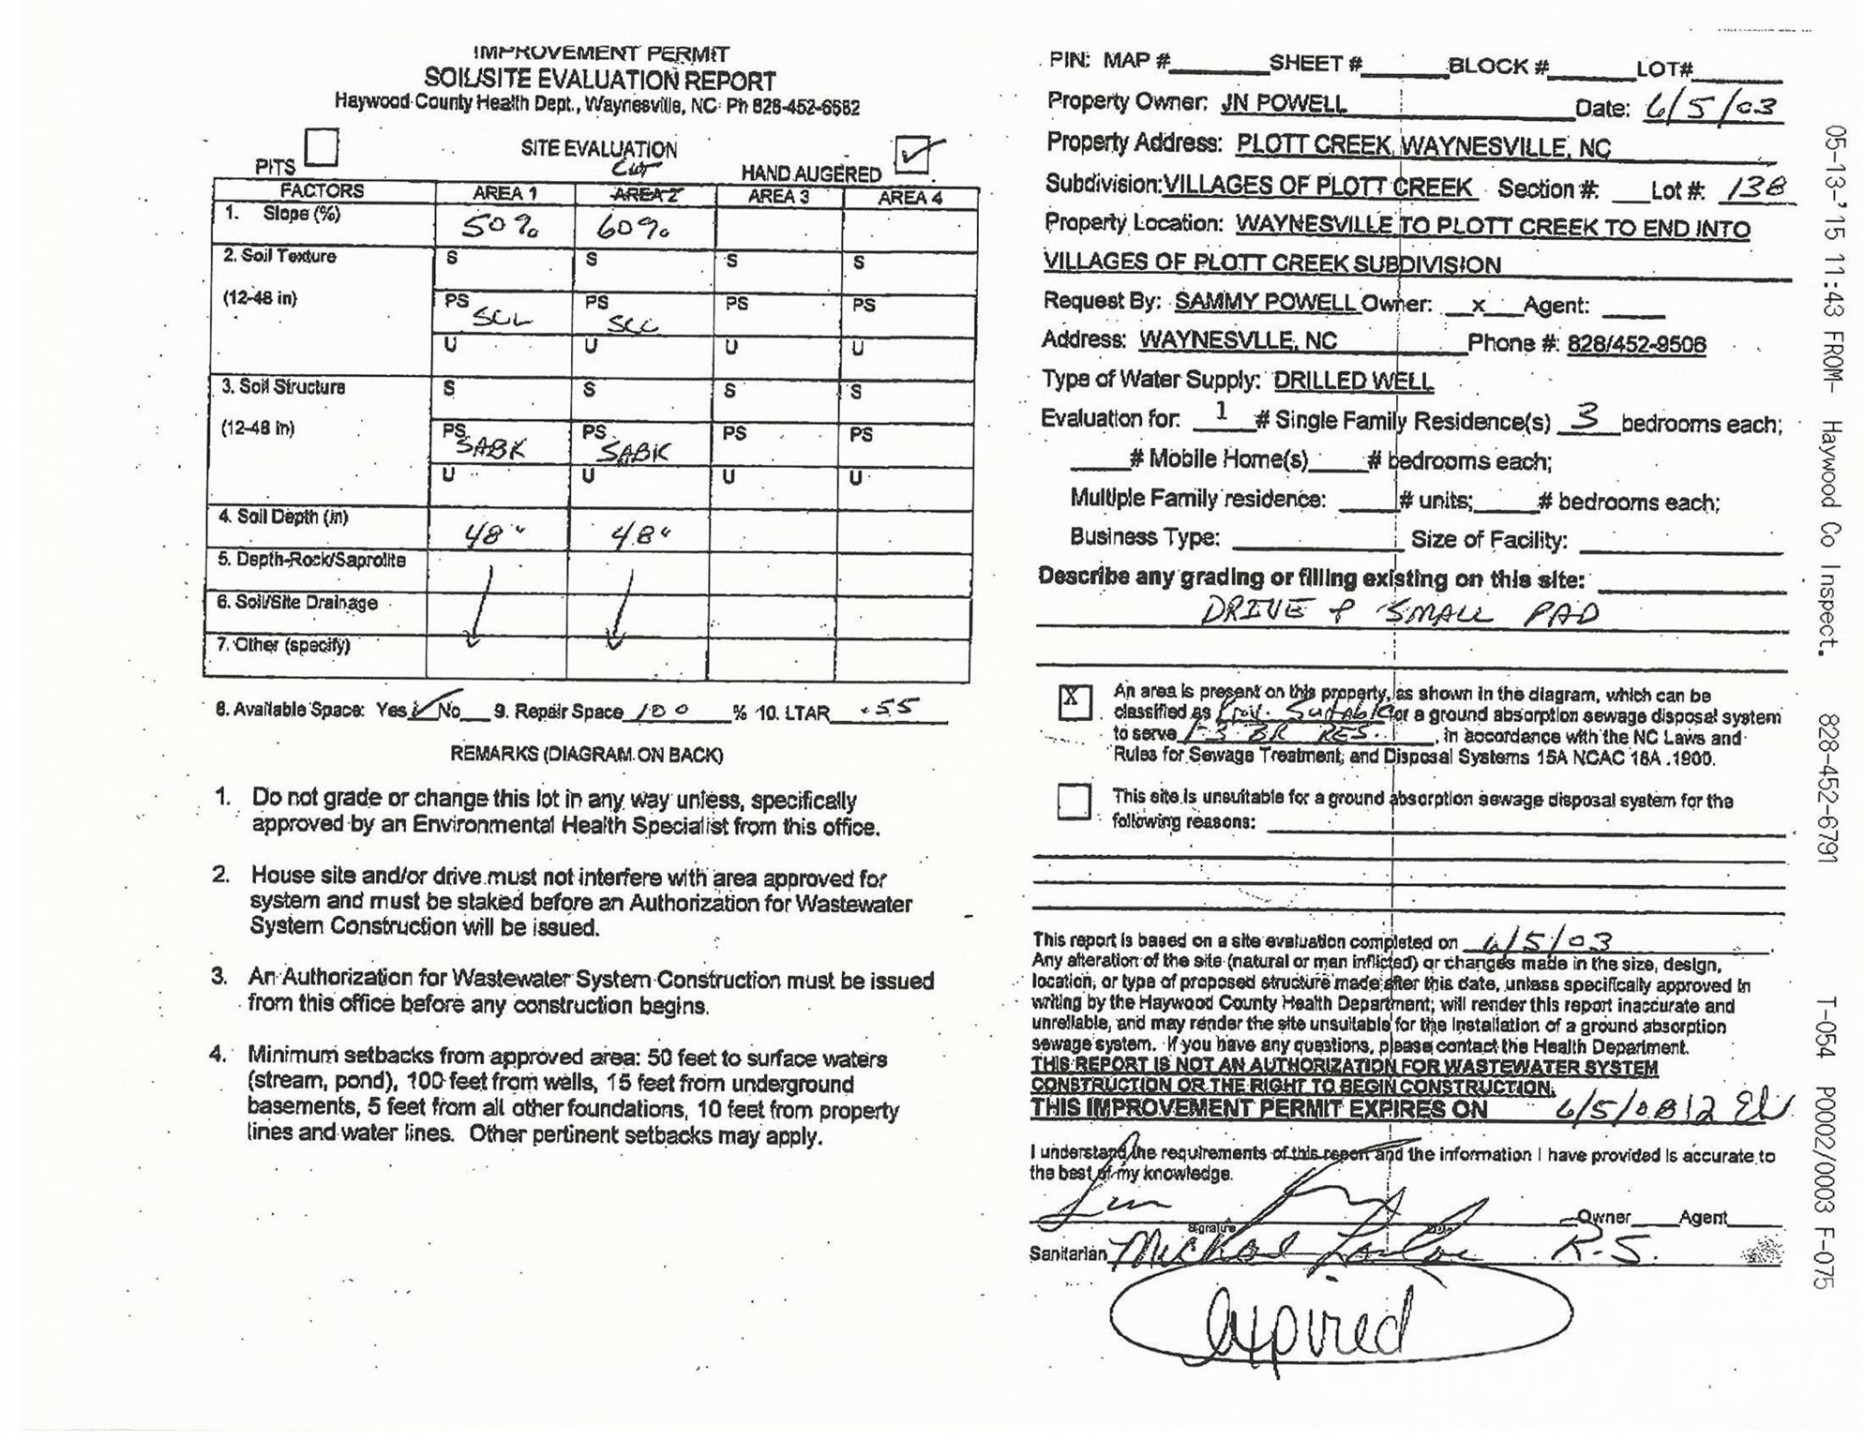 IMPROVEMENT PERMIT
SOIL/SITE EVALUATION REPORT
Haywood County Health Dept., Waynesville, NC Ph 828-452-6682
PITS
SITE EVALUATION
HAND AUGERED ✓
Cut
FACTORS AREA 1 AREA 2 AREA 3 AREA 4
1. Slope (%) 50% 60%
2. Soil Texture S S S S
(12-48 in) PS SCL PS SCL PS PS
U U U U
3. Soil Structure S S S S
(12-48 in) PS SABK PS SABK PS PS
U U U U
4. Soil Depth (in) 48" 48"
5. Depth-Rock/Saprolite
6. Soil/Site Drainage
7. Other (specify)
8. Available Space: Yes ✓ No 9. Repair Space 100 % 10. LTAR .55
REMARKS (DIAGRAM ON BACK)
1. Do not grade or change this lot in any way unless, specifically
approved by an Environmental Health Specialist from this office.
2. House site and/or drive must not interfere with area approved for
system and must be staked before an Authorization for Wastewater
System Construction will be issued.
3. An Authorization for Wastewater System Construction must be issued
from this office before any construction begins.
4. Minimum setbacks from approved area: 50 feet to surface waters
(stream, pond), 100 feet from wells, 15 feet from underground
basements, 5 feet from all other foundations, 10 feet from property
lines and water lines. Other pertinent setbacks may apply.
PIN: MAP # SHEET # BLOCK # LOT#
Property Owner: JN POWELL Date: 6/5/03
Property Address: PLOTT CREEK, WAYNESVILLE, NC
Subdivision: VILLAGES OF PLOTT CREEK Section #: Lot #: 138
Property Location: WAYNESVILLE TO PLOTT CREEK TO END INTO
VILLAGES OF PLOTT CREEK SUBDIVISION
Request By: SAMMY POWELL Owner: x Agent:
Address: WAYNESVLLE, NC Phone #: 828/452-9506
Type of Water Supply: DRILLED WELL
Evaluation for: 1 # Single Family Residence(s) 3 bedrooms each;
# Mobile Home(s) # bedrooms each;
Multiple Family residence: # units; # bedrooms each;
Business Type: Size of Facility:
Describe any grading or filling existing on this site:
DRIVE & SMALL PAD
X An area is present on this property, as shown in the diagram, which can be
classified as Prov. Suitable for a ground absorption sewage disposal system
to serve 1-3 BR RES. , in accordance with the NC Laws and
Rules for Sewage Treatment, and Disposal Systems 15A NCAC 18A .1900.
This site is unsuitable for a ground absorption sewage disposal system for the
following reasons:
This report is based on a site evaluation completed on 6/5/03 .
Any alteration of the site (natural or man inflicted) or changes made in the size, design,
location, or type of proposed structure made after this date, unless specifically approved in
writing by the Haywood County Health Department; will render this report inaccurate and
unreliable, and may render the site unsuitable for the installation of a ground absorption
sewage system. If you have any questions, please contact the Health Department.
THIS REPORT IS NOT AN AUTHORIZATION FOR WASTEWATER SYSTEM
CONSTRUCTION OR THE RIGHT TO BEGIN CONSTRUCTION.
THIS IMPROVEMENT PERMIT EXPIRES ON 6/5/08
I understand the requirements of this report and the information I have provided is accurate to
the best of my knowledge.
Signature Owner Agent
Sanitarian Michael R.S.
expired
05-13-'15 11:43 FROM- Haywood Co Inspect. 828-452-6791 T-054 P0002/0003 F-075